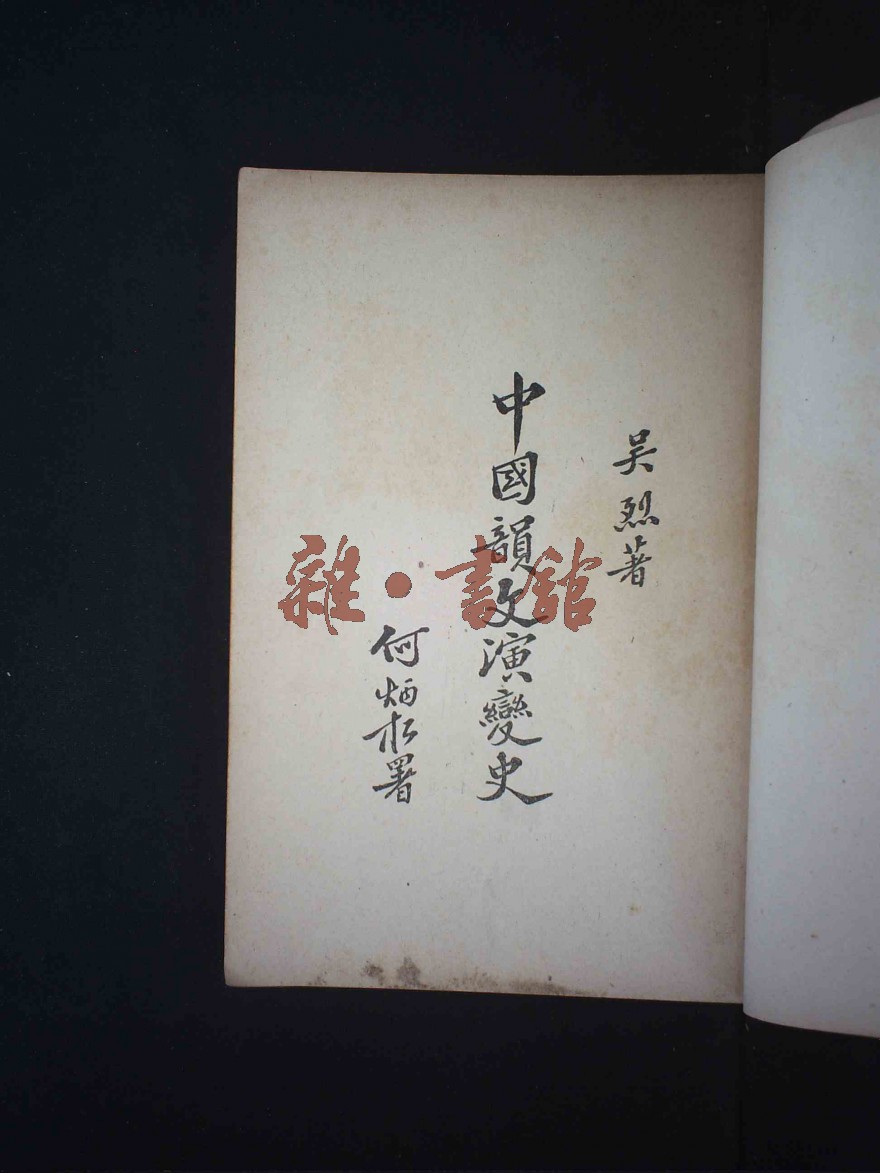 吴烈著
中國韻文演變史
何炳松署
雜·書舘